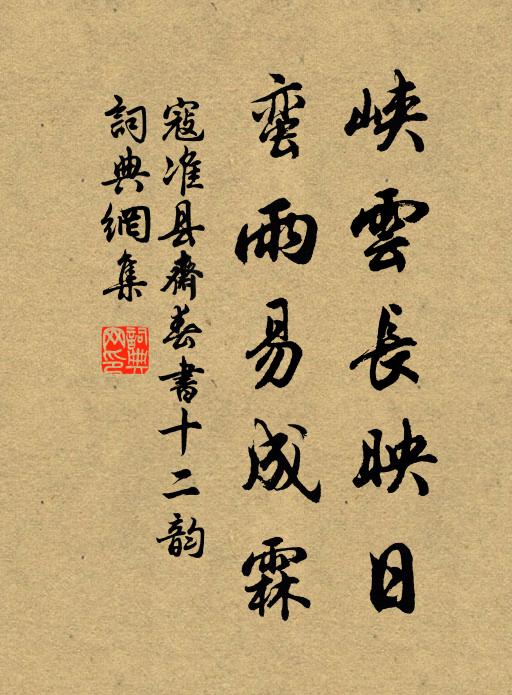 峡雲長映日
蛮雨易成霖
寇准县齋春書十二韵
詞典網集
詞典网印